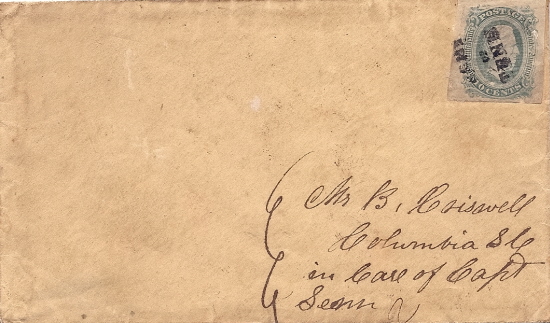 POSTAGE
TEN CENTS
Mr B. Criswell
Columbia S C
in Care of Capt
Senn